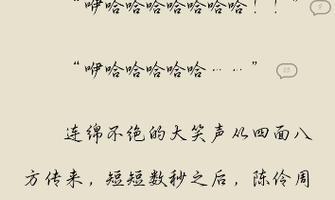 “咿哈哈哈哈哈哈哈！！”
“咿哈哈哈哈哈……”
连绵不绝的大笑声从四面八
方传来，短短数秒之后，陈伶周